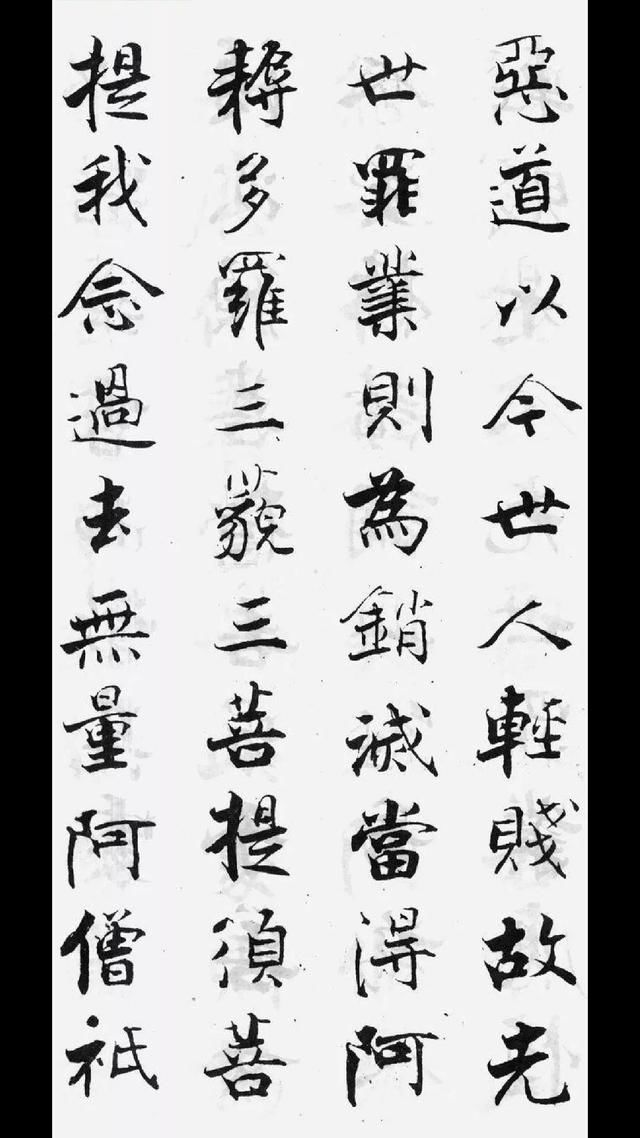 惡道以今世人輕賤故先
世罪業則為銷滅當得阿
耨多羅三藐三菩提須菩
提我念過去無量阿僧祇